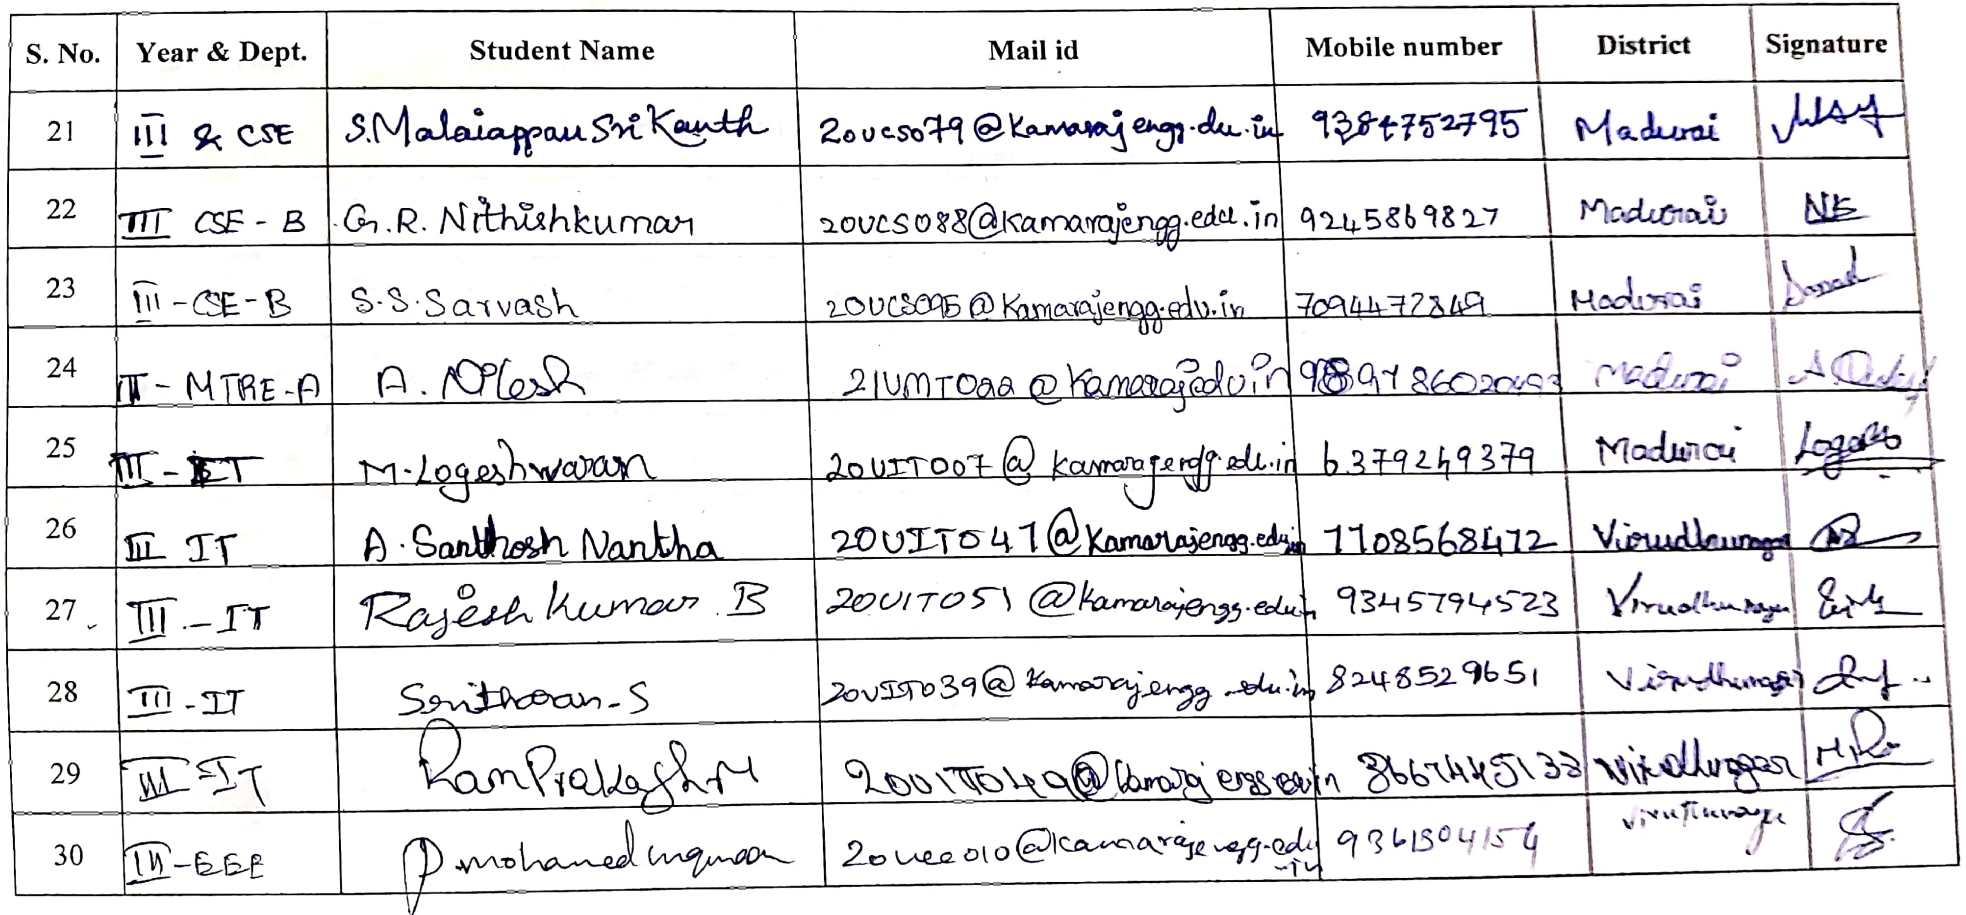 S. No. Year & Dept. Student Name Mail id Mobile number District Signature
21 III & CSE S.Malaiappan Sri Kanth 20ucs079@kamarajengg.du.in 9384752795 Madurai
22 III CSE - B G.R. Nithishkumar 20UCS088@kamarajengg.edu.in 9245869827 Madurai NK
23 III - CSE - B S.S.Sarvash 20UCS095@kamarajengg.edu.in 7094472849 Madurai
24 II - MTRE - A A. Nilesh @kamarajeduin Madurai
25 III - IT M.Logeshwaran 20UIT007@kamarajengg.edu.in 6379249379 Madurai
26 III IT A.Santhosh Nantha 20UIT047@kamarajengg.edu.in 7708568472 Virudhunagar
27 III - IT Rajesh Kumar B 20UIT051@kamarajengg.edu.in 9345794523 Virudhunagar
28 III - IT Sritharan - S 20UIT039@kamarajengg.edu.in 8248529651 Virudhunagar
29 III - IT RamPrakash M 20UIT049@ Virudhunagar
30 III - EEE P mohamed 20uee010@kamarajengg.edu
.in 9361504154